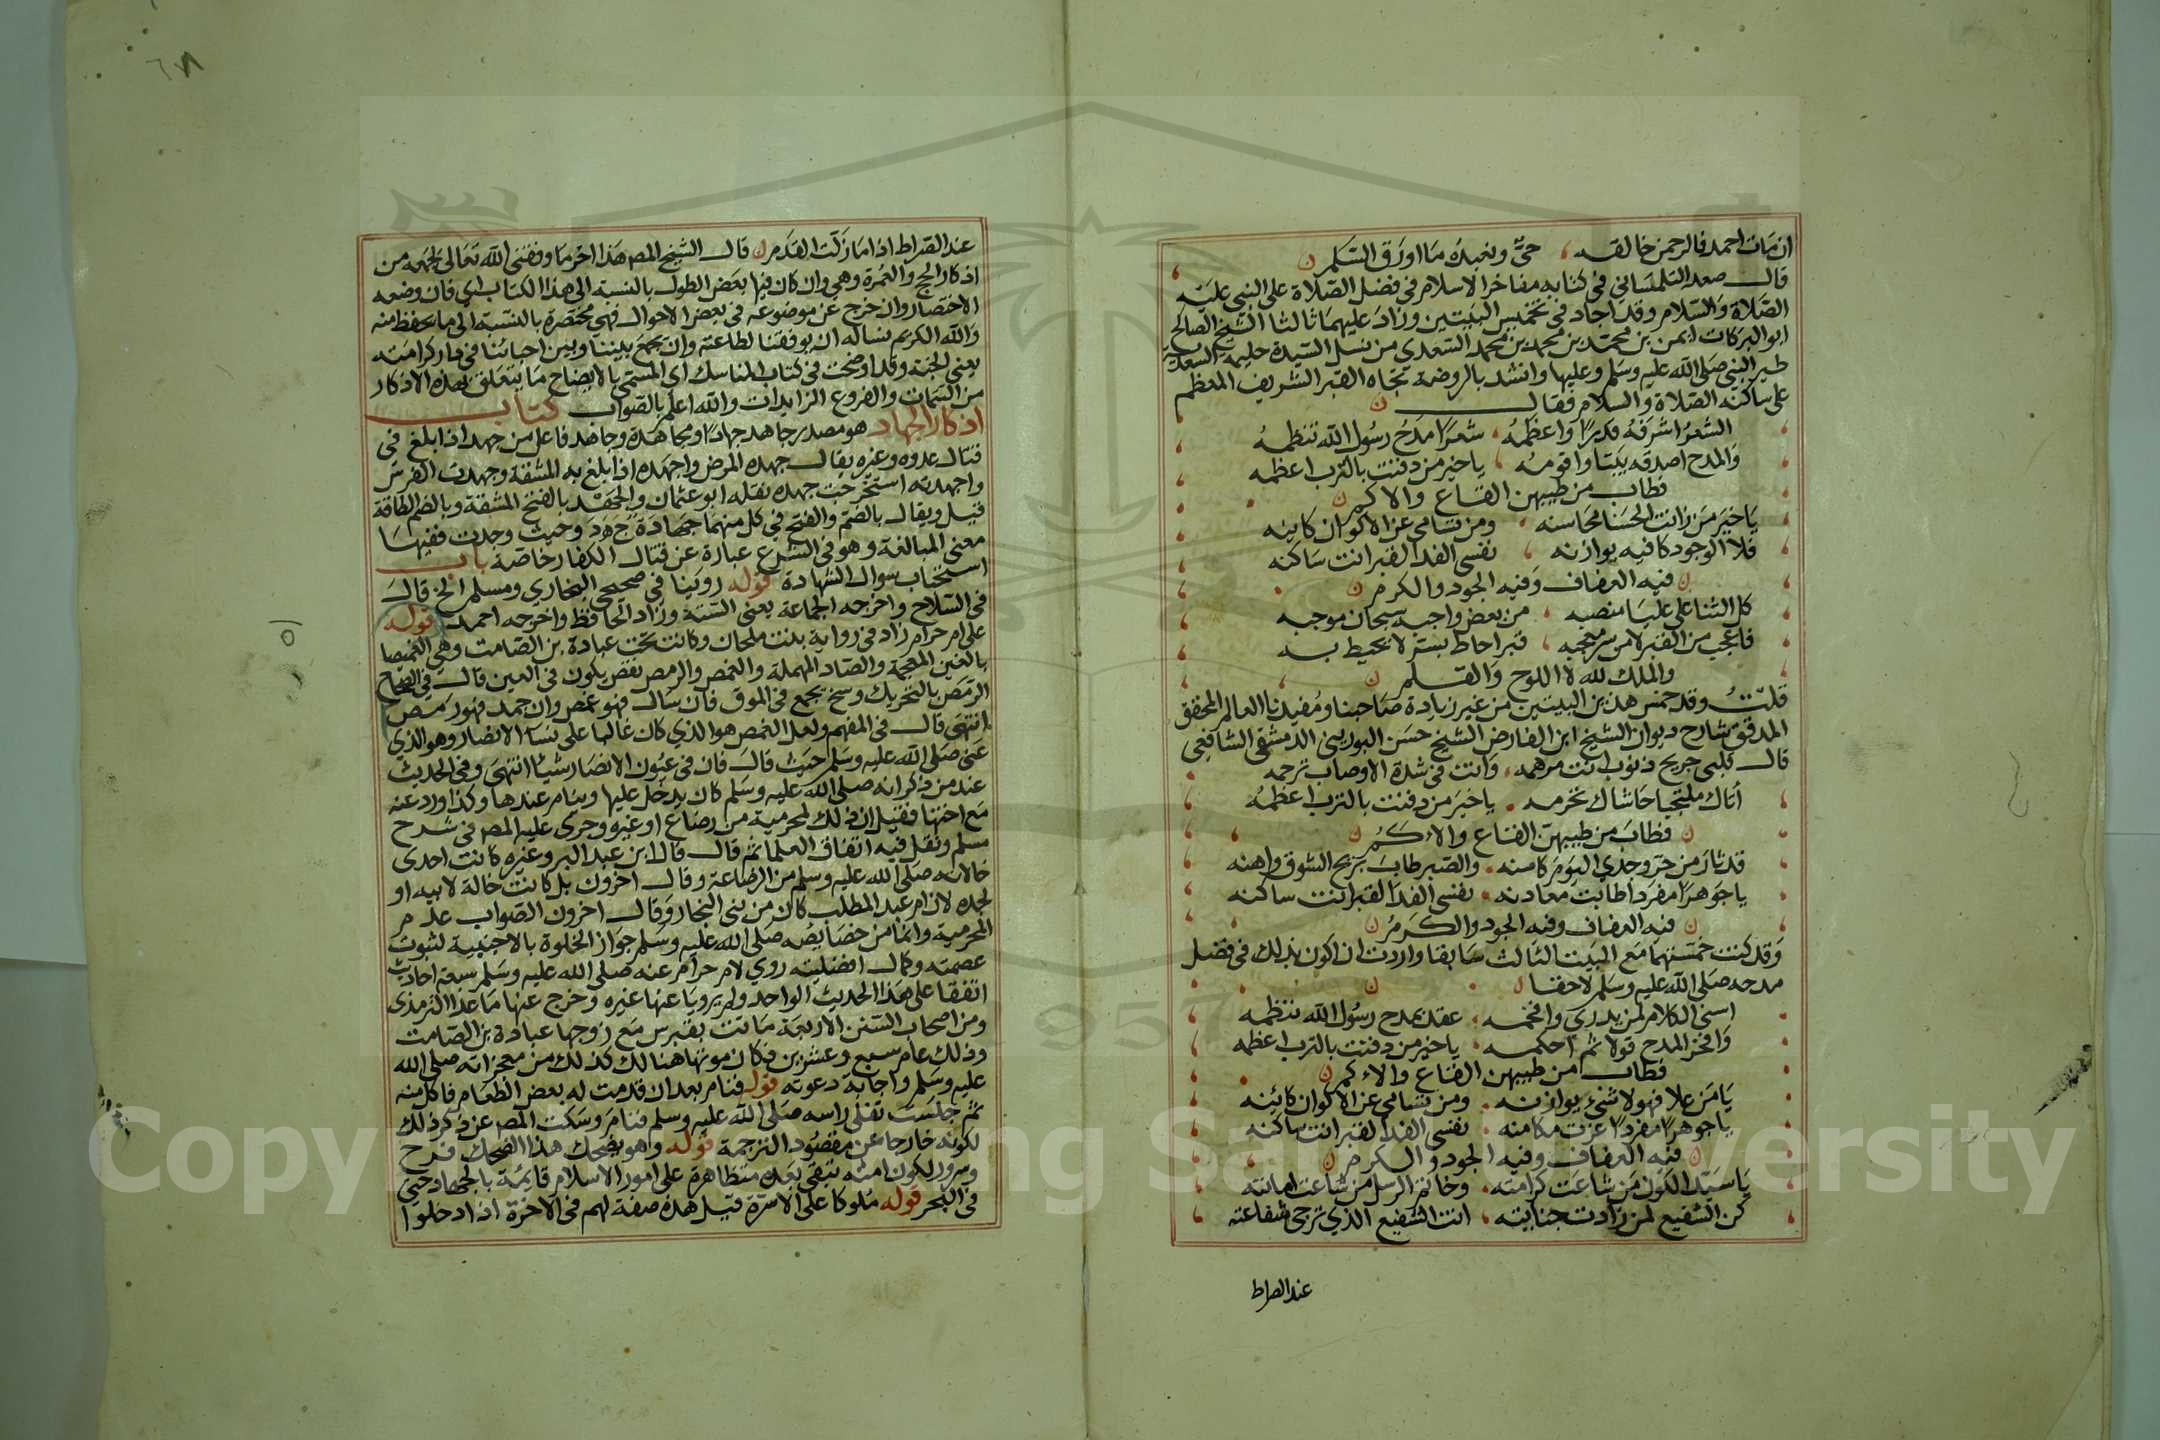 ان مات احمد فالرحمن خالقه حيّ ونعبده ما اورق السلم
قال صعد التلمساني في كتابه مفاخر الاسلام في فضل الصلاة على النبي عليه
الصلاة والسلام وقد اجاد في تخميس البيتين وزاد عليهما ثالثا الشيخ الصالح
ابو البركات ايمن بن محمد بن محمد بن محمد السعدي من نسل السيدة حليمة السعدية
ظير النبي صلى الله عليه وسلم وعليها وانشد بالروضة تجاه القبر الشريف المعظم
على ساكنه الصلاة والسلام فقال
الشعر اشرفه قدرا واعظمه شعرا مدح رسول الله تنظمه
والمدح اصدقه بيتا واقومه ياخير من دفنت بالترب اعظمه
فطاب من طيبهن القاع والاكم
يا خير من زانت الحسنا محاسنه ومن تسامى عن الاكوان كاينه
فلا الوجود كا فيه يوازنه نفسي الفدا لقبر انت ساكنه
فيه العفاف وفيه الجود والكرم
كل الثنا على عليا منصبه من بعض واجبه سبحان موجبه
فاعجب من القبر لا من سر معجبه قبر احاط بستر لا نحيط به
والملك لله لا اللوح والقلم
قلت وقد خمس هذين البيتين من غير زيادة صاحبنا ومفيدنا العالم المحقق
المدقق شارح ديوان الشيخ ابن الفارض الشيخ حسن البوريني الدمشقي الشافعي
قال قلبي جريح ذنوب انت مرهمه وانت في شدة الاوصاب ترحمه
اتاك ملتجيا حاشاك تحرمه ياخير من دفنت بالترب اعظمه
فطاب من طيبهن القاع والاكم
قد ثار من حر وجدي اليوم كامنه والصبر طاب بريح الشوق واهنه
يا جوهرا مفردا طابت معادنه نفسي الفدا لقبر انت ساكنه
فيه العفاف وفيه الجود والكرم
وقد كنت خمستهما مع البيت الثالث سابقا واردت ان اكون بذلك في فضل
مدحه صلى الله عليه وسلم لاحقا
اسنى الكلام لمن يدري وافخمه عقد بمدح رسول الله تنظمه
وافخر المدح قولا ثم احكمه ياخير من دفنت بالترب اعظمه
فطاب من طيبهن القاع والاكم
يا من علا فهو لا شيء يوازنه ومن تسامى عن الاكوان كائنه
يا جوهرا مفردا عزت مكامنه نفسي الفدا لقبر انت ساكنه
فيه العفاف وفيه الجود والكرم
يا سيد الكون من شاعت كرامته وخاتم الرسل من شاعت امانته
كن الشفيع لمن زادت جنايته انت الشفيع الذي ترجى شفاعته
عند الصراط
٦٨
عند الصراط اذا ما زلت القدم قال الشيخ المصر هذا اخر ما وفقني الله تعالى لجمعه من
اذكار الحج والعمرة وهي وان كان فيها بعض الطول بالنسبة الى هذا الكتاب اي فان وضعه
الاختصار وان خرج عن موضوعه في بعض الاحوال فهي مختصرة بالنسبة الى ما يحفظ منه
والله الكريم نساله ان يوفقنا لطاعته وان يجمع بيننا وبين احبائنا في دار كرامته
يعني الجنة وقد اوضحت في كتاب المناسك اي المسمى بالايضاح ما يتعلق بهذه الاذكار
من التتمات والفروع الزايدات والله اعلم بالصواب كتاب
اذكار الجهاد هو مصدر جاهد جهادا ومجاهدة وجاهد فاعل من جهد اذا بلغ في
قتال عدوه وغيره يقال جهده المرض واجهده اذا بلغ به المشقة وجهدت الفرس
واجهدته استخرجت جهده نقله ابو عثمان والجهد بالفتح المشقة وبالضم الطاقة
قيل ويقال بالضم والفتح في كل منهما فمادة ج ه د وحيث وجدت ففيها
معنى المبالغة وهو في الشرع عبارة عن قتال الكفار خاصة باب
استحباب سوال الشهادة قوله روينا في صحيحي البخاري ومسلم الخ قال
في السلاح واخرجه الجماعة يعني الستة وزاد الحافظ واخرجه احمد قوله
على ام حرام زاد في رواية بنت ملحان وكانت تحت عبادة بن الصامت وهي الغميصا
بالغين المعجمة والصاد المهملة والغمص والرمص نقص يكون في العين قال في الصحاح
الرمص بالتحريك وسخ يجمع في الموق فان سال فهو غمص وان جمد فهو رمص
انتهى قال في المفهم ولعل الغمص هو الذي كان غالبا على نساء الانصار وهو الذي
عنى صلى الله عليه وسلم حيث قال فان في عيون الانصار شيئا انتهى وفي الحديث
عند من ذكر انه صلى الله عليه وسلم كان يدخل عليها وينام عندها وكذا ورد عنه
مع اختها فقيل ان ذلك لمحرمية من رضاع او غيره وجرى عليه المصر في شرح
مسلم ونقل فيه اتفاق العلما ثم قال قال ابن عبد البر وغيره كانت احدى
خالاته صلى الله عليه وسلم من الرضاعة وقال اخرون بل كانت خالة لابيه او
لجده لان ام عبد المطلب كان من بني النجار وقال اخرون الصواب عدم
المحرمية وانما من خصايصه صلى الله عليه وسلم جواز الخلوة بالاجنبية لثبوت
عصمته وكمال افضليته روي لام حرام عنه صلى الله عليه وسلم سبعة احاديث
اتفقا على هذا الحديث الواحد ولم يرويا عنها غيره وخرج عنها ما عدا الترمذي
ومن اصحاب السنن الاربعة ماتت بقبرس مع زوجها عبادة بن الصامت
وذلك عام سبع وعشرين فكان موتها هنالك كذلك من معجزاته صلى الله
عليه وسلم واجابة دعوته قوله فنام بعد ان قدمت له بعض الطعام فاكل منه
ثم جلست تفلي راسه صلى الله عليه وسلم فنام وسكت المصر عن ذكر ذلك
لكونه خارجا عن مقصود الترجمة قوله وهو يضحك هذا الضحك فرح
وسرور لكون امته تبقى بعده متظاهرة على امور الاسلام قايمة بالجهاد حتى
في البحر قوله ملوكا على الاسرة قيل هذه صفة لهم في الاخرة اذا دخلوا